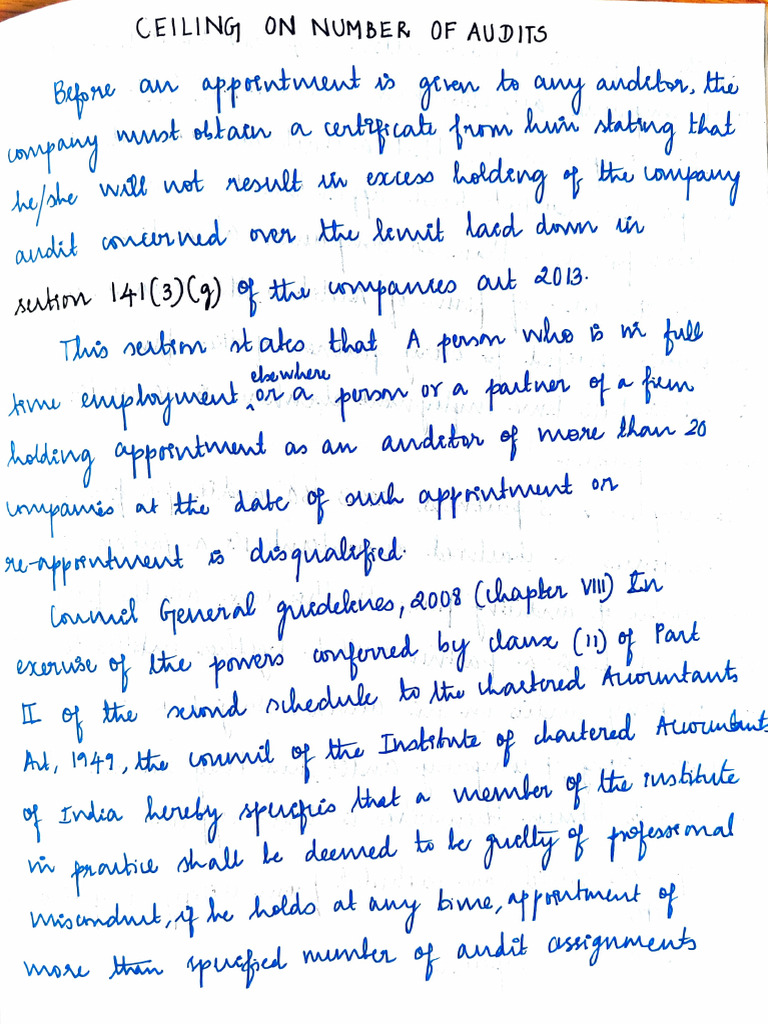 CEILING ON NUMBER OF AUDITS
Before an appointment is given to any auditor, the
company must obtain a certificate from him stating that
he/she will not result in excess holding of the company
audit concerned over the limit laid down in
section 141(3)(g) of the companies act 2013.
This section states that A person who is in full
elsewhere
time employment, or a person or a partner of a firm
holding appointment as an auditor of more than 20
companies at the date of such appointment or
re-appointment is disqualified.
Council General guidelines, 2008 (chapter VIII) In
exercise of the powers conferred by clause (ii) of Part
II of the second schedule to the chartered Accountants
Act, 1949, the council of the Institute of chartered Accountants
of India hereby specifies that a member of the institute
in practice shall be deemed to be guilty of professional
misconduct, if he holds at any time, appointment of
more than specified number of audit assignments